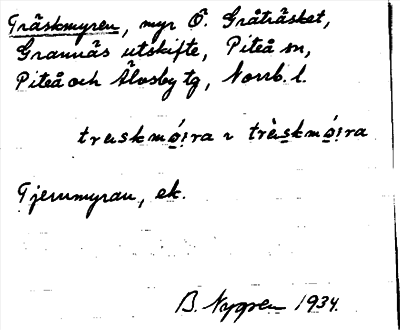 Träskmyren, myr Ö. Gråträsket,
Grannäs utskifte, Piteå sn,
Piteå och Älvsby tg, Norrb. l.
träskmó̲:ra ~ trä̀skmó̲:ra
Tjernmyran, ek.
B. Nygren 1934.